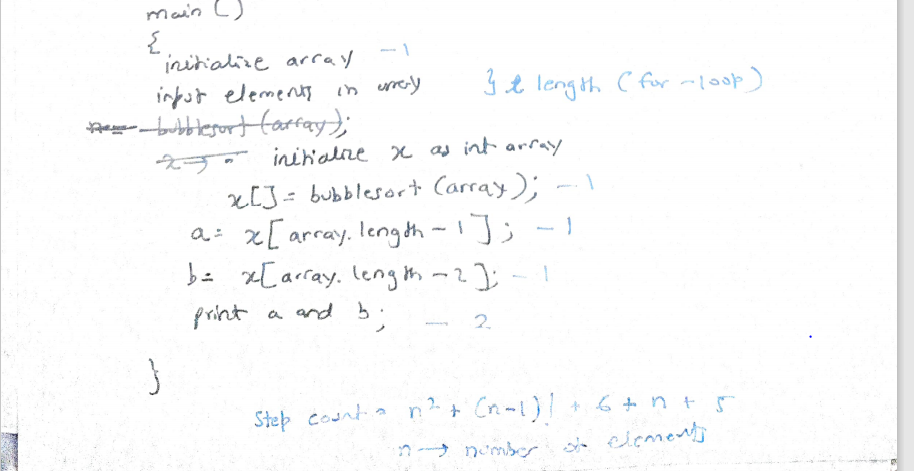 main ()
{
initialize array - 1
input elements in array } length (for-loop)
bubblesort (array);
initialize x as int array
x[] = bubblesort (array); - 1
a = x[array.length - 1]; - 1
b = x[array.length - 2]; - 1
print a and b; - 2
}
Step count = n² + (n-1)! + 6 + n + 5
n → number of elements